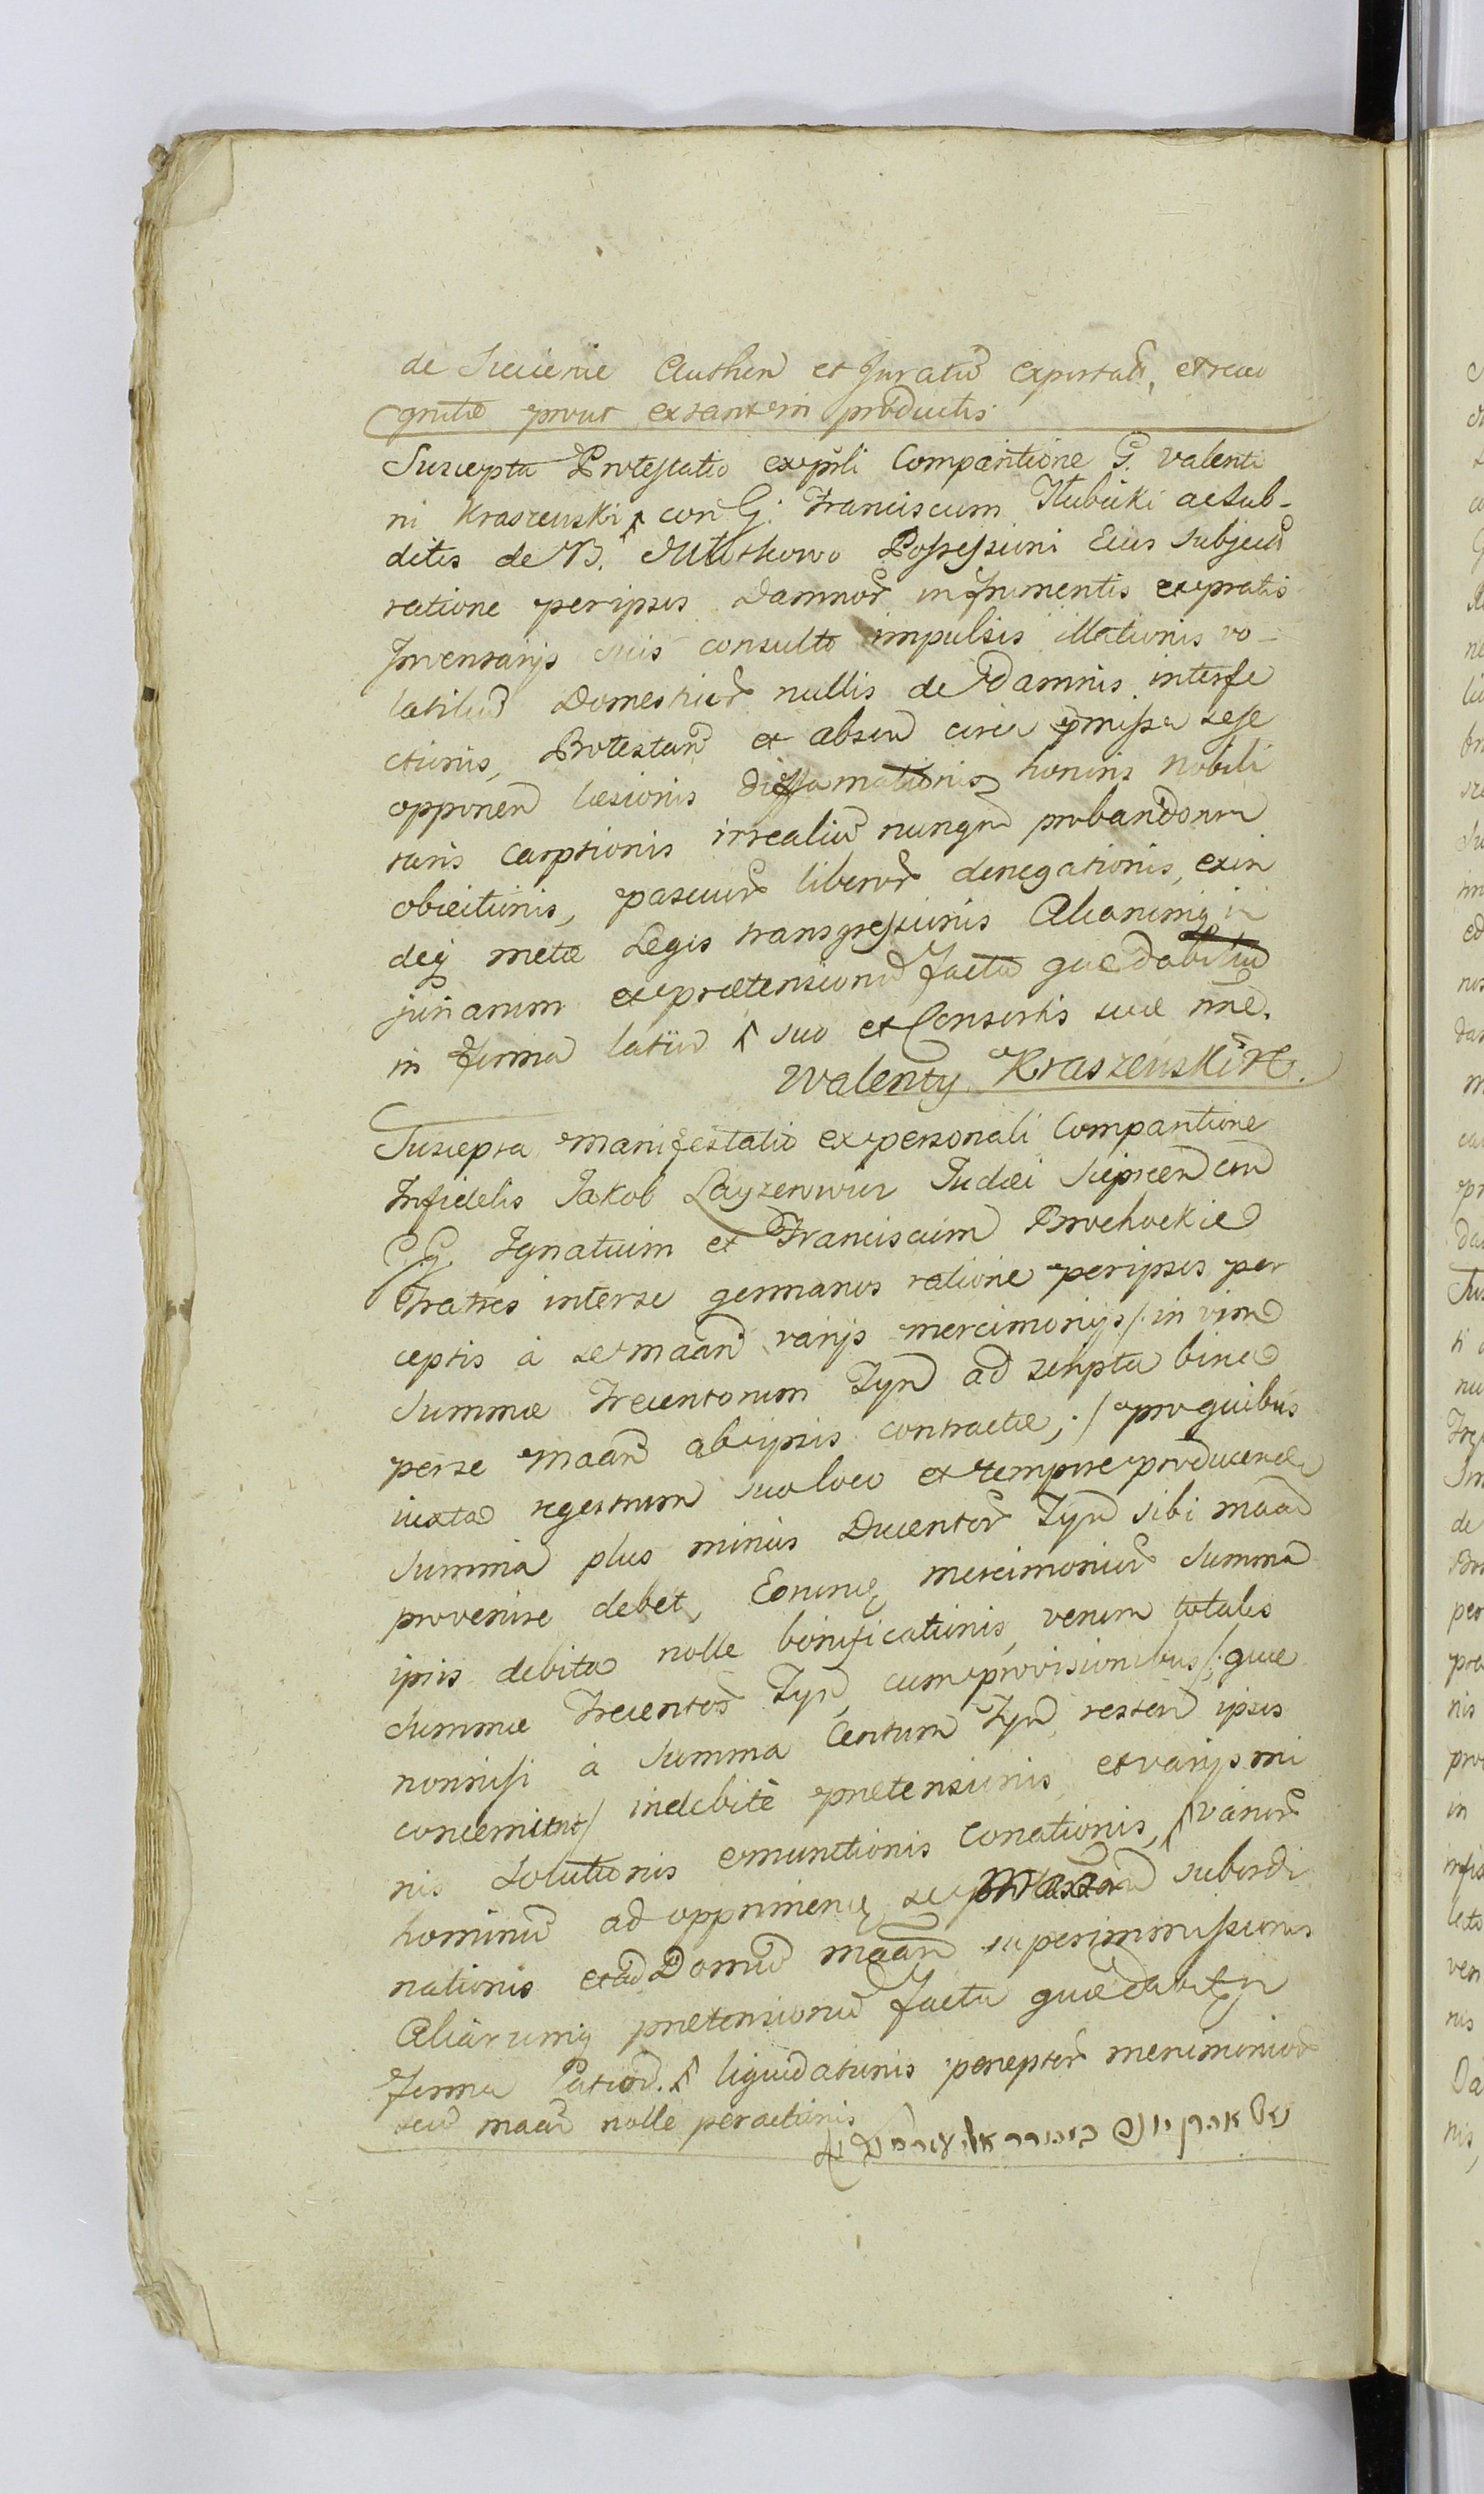 de Authen et Juratū exportat, et reco
gnitæ prout extant in productis
Suscepta Protestatio ex psli Comparitione G. Valenti
ni Kraszewski con G. Franciscum Kłubicki ac Sub-
ditis de B. Possessioni Eius Subject
ratione per ipsos Damnor in frumentis ex pratis
Inventarijs suis consulto impulsis illationis vo-
latiliū Domesticor nullis de Damnis interfe
ctionis, Protestan et absen circa pmissa sese
opponen læsionis diffamationis honoris Nobili
taris carptionis irrealiū nunqm probandorum
obiectionis, pascuor liberor denegationis, exin
deq metæ Legis transgressionis Aliarumq in
juriarum et prætensionū facta quæ dabitur
in forma latiū suo et Consortis suæ nne.
Walenty Kraszewski
Suscepta Manifestatio ex personali Comparitione
Infidelis Jakob Layzerowicz Judæi con
G.G. Ignatium et Franciscum Brochockie
Fratres inter se germanos ratione per ipsos per
ceptis à se maan varijs mercimonijs /: in vim
Summæ Trecentorum Tyn ad scripta bina
per se maan ab ipsis contractæ, :/ pro quibus
iuxta regestrum suo loco et tempore producen
Summa plus minus Ducentor Tyn sibi maan
provenire debet, Eorumq mercimonior Summa
ipsis debita nolle bonificationis, verum totalis
Summæ Trecentor Tyn, cum provisionibus /: quæ
nonnisi à Summa Centum Tyn resten ipsos
concernunt / indebitè prætensionis, et varijs mi
nis Solutionis emunctionis Conationis, varior
hominū ad opprimen se subordi
nationis et ad Domū maan superimmissionis
Aliarumq prætensionū facta quæ dabitur in
forma Latiori liquidationis perceptor mercimonior
seu maan nolle peractionis